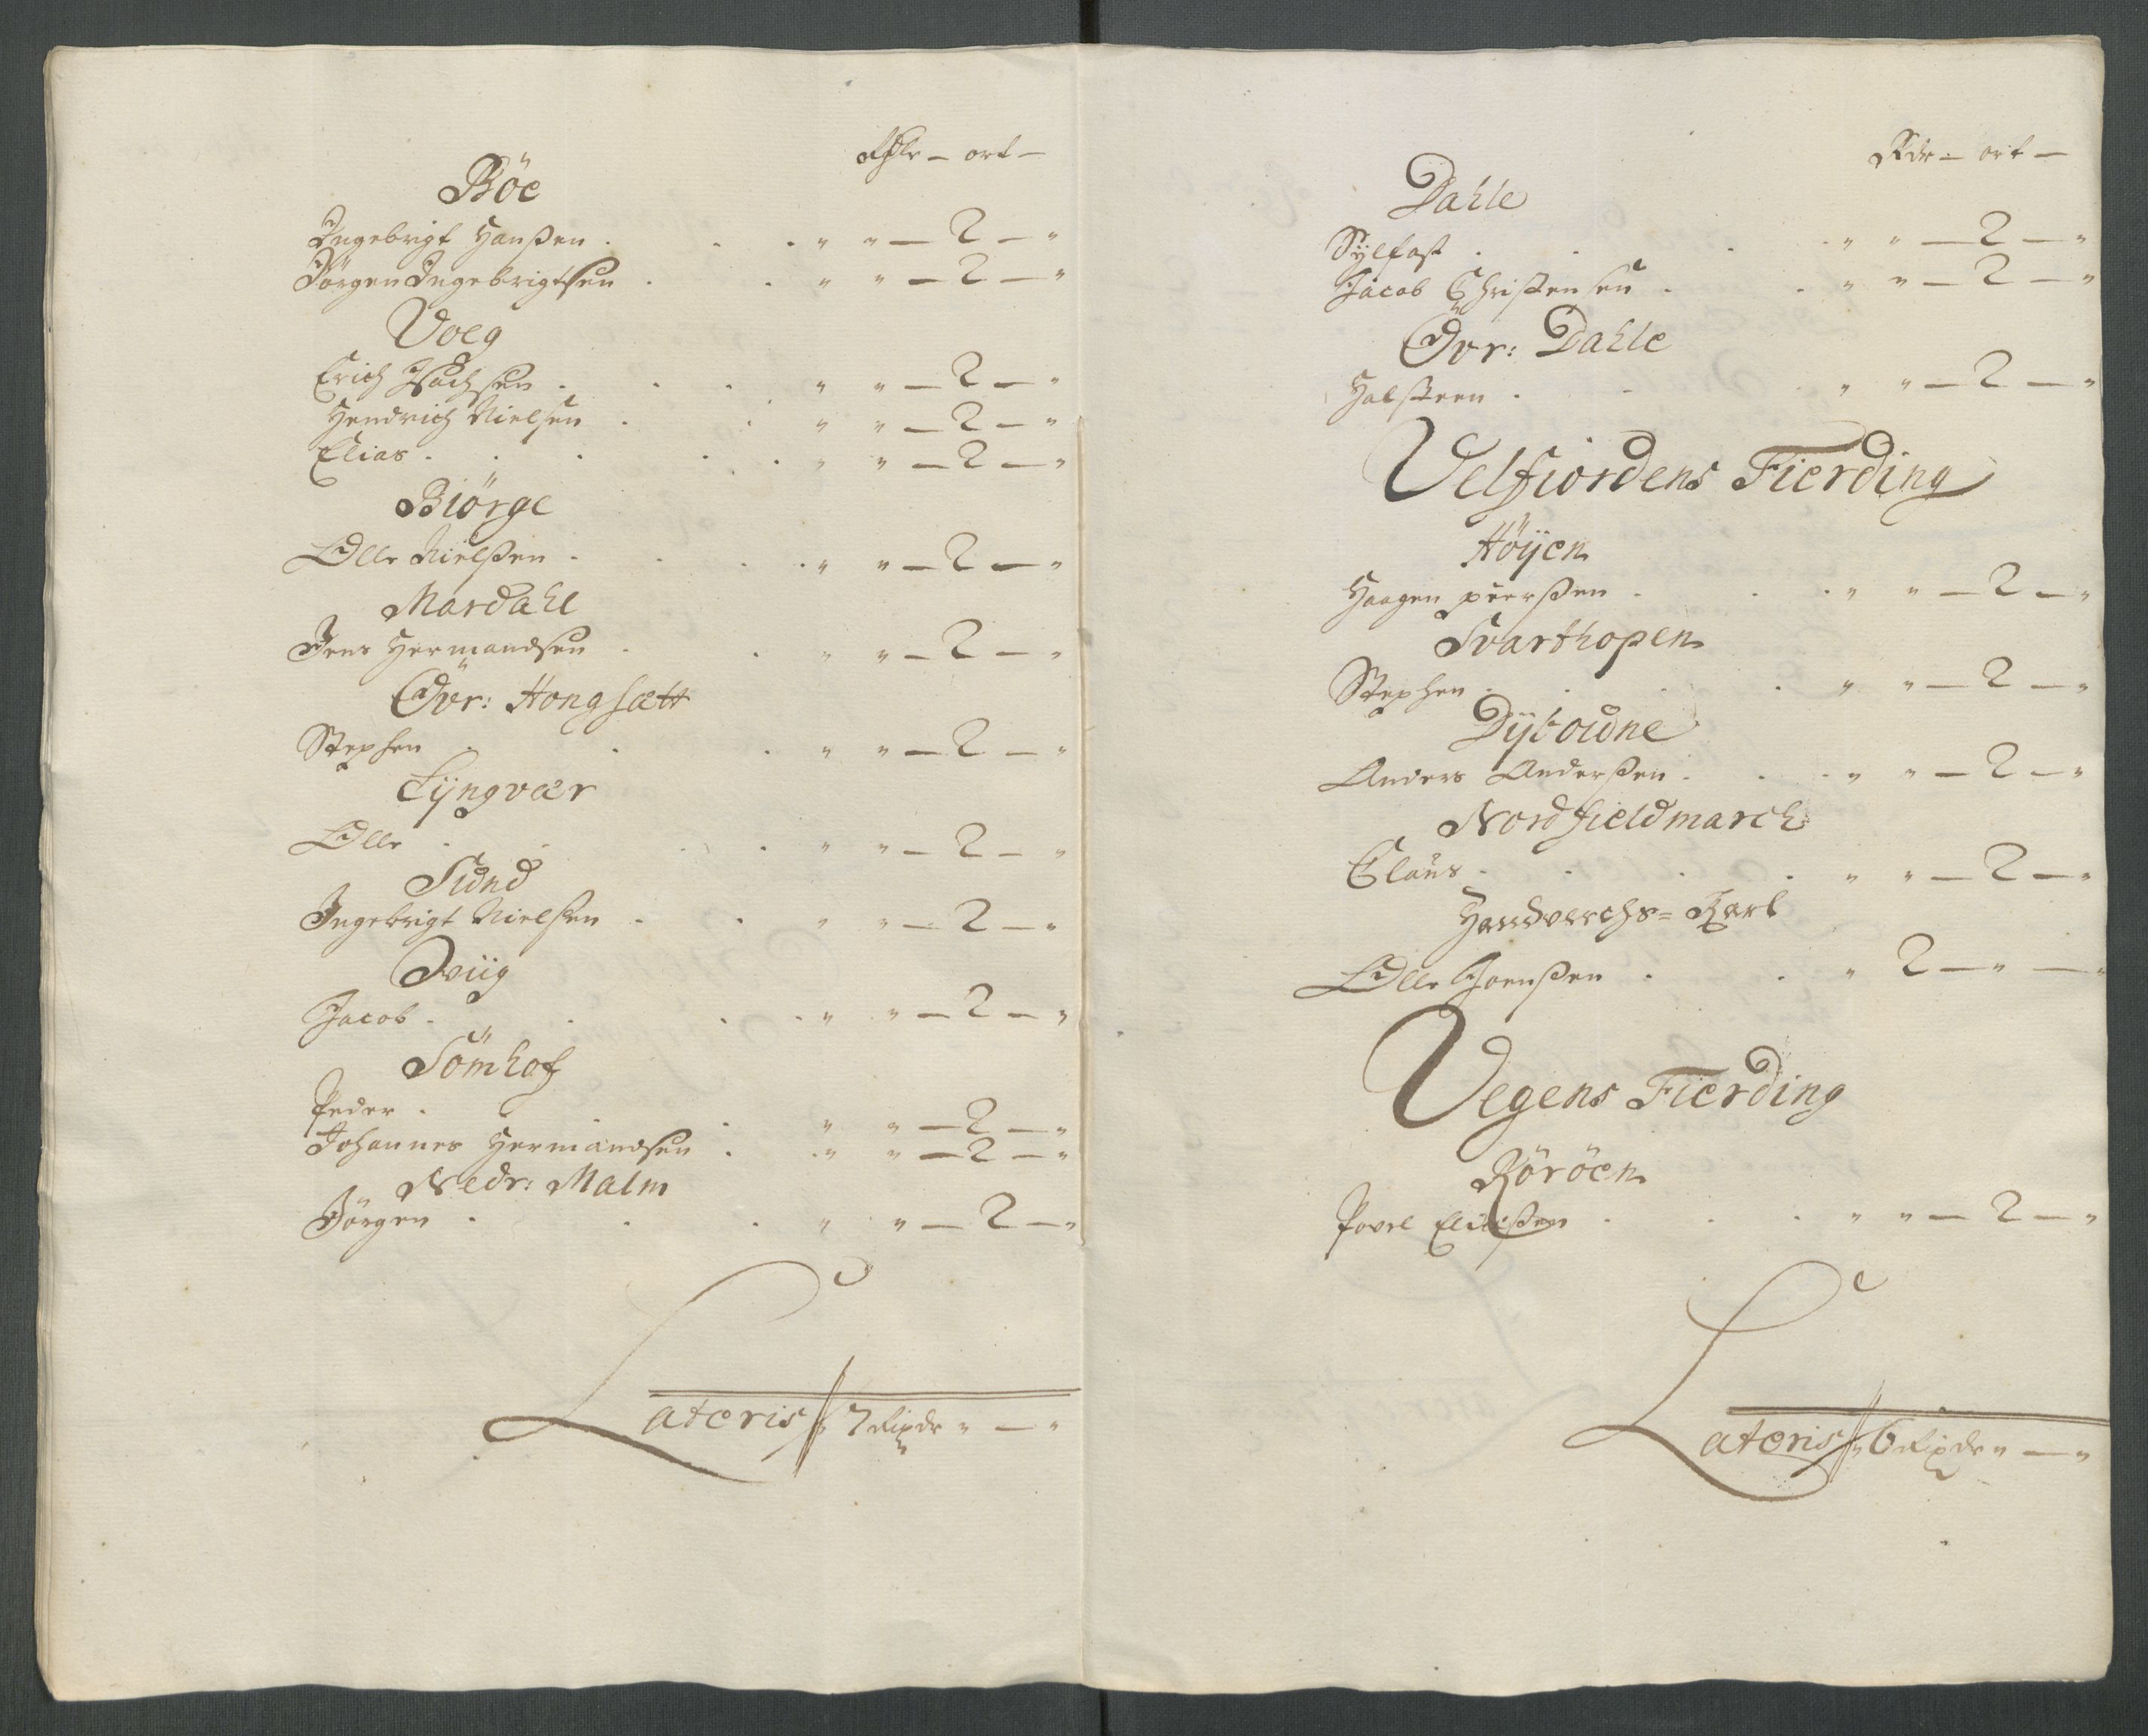 Rdlr – ort –
Böe
Ingebrigt Hanßen . . . " " – 2 – "
Jörgen Ingebrigtsen . . " " – 2 – "
Voeg
Erich Isachsen . . . " " – 2 – "
Hendrich Nielsen . . " " – 2 – "
Elias . . . . . " " – 2 – "
Biörge
Olle Nielßen . . . . " " – 2 – "
Mardahl
Jens Hermandsen . . " " – 2 – "
Övr: Hongsætt
Stephen . . . " " – 2 – "
Lyngvær
Olle . . . . " " – 2 – "
Sund
Ingebrigt Nielsen . . " " – 2 – "
Viig
Jacob . . . . " " – 2 – "
Sömhof
Peder . . . " " – 2 – "
Johannes Hermandsen . . " " – 2 – "
Nedr: Malm
Jörgen . . . " " – 2 – "
Lateris " 7 Rixdr " – "
Rdr – ort –
Dahle
Sylfast . . . . " " – 2 – "
Jacob Christensen . . " " – 2 – "
Övr: Dahle
Halsteen . . . " " – 2 – "
Velfiordens Fierding
Höyen
Haagen peerßen . . . " " – 2 – "
Svarthopen
Stephen . . . . " " – 2 – "
Dyboudne
Anders Anderßen . . . " " – 2 – "
Nordfieldmarch
Claus . . . . " " – 2 – "
Handverchs = Karl
Olle Joenßen . . " 2 – " – "
Vegens Fierding
Röröen
Povel Elissen . . . " " – 2 – "
Lateris " 6 Rixdr " – "